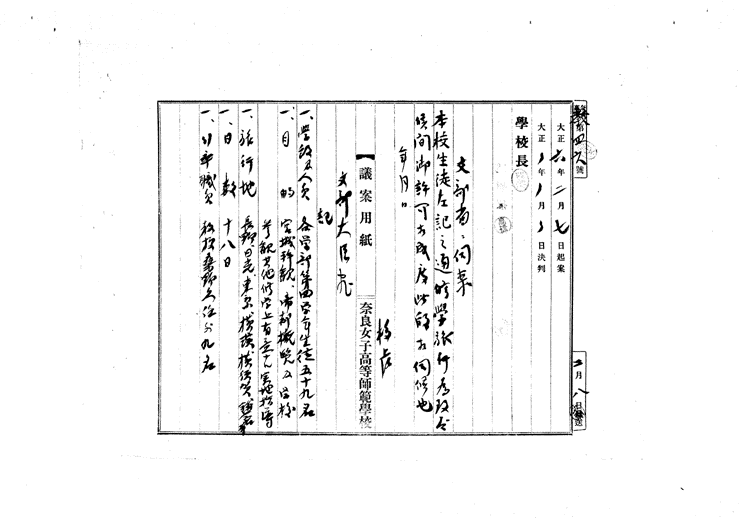 第四六號
大正六年二月七日起案
大正 年 月 日決判
學校長
文部省ヘ伺案
本校生徒左記之通修學旅行為致度
候間御許可相成度此段相伺候也
年月日
校長
文部大臣宛
議案用紙
奈良女子高等師範學校
記
一、學級及人員 各學部第四學年生徒五十九名
一、目的 宮城拝観、帝都概覧及学校
参観其他修学上有益ナル実地指導
一、旅行地 長野、日光、東京、横濱、横須賀、鎌倉
一、日數 十八日
一、引率職員 教授 以下九名
二月八日發送